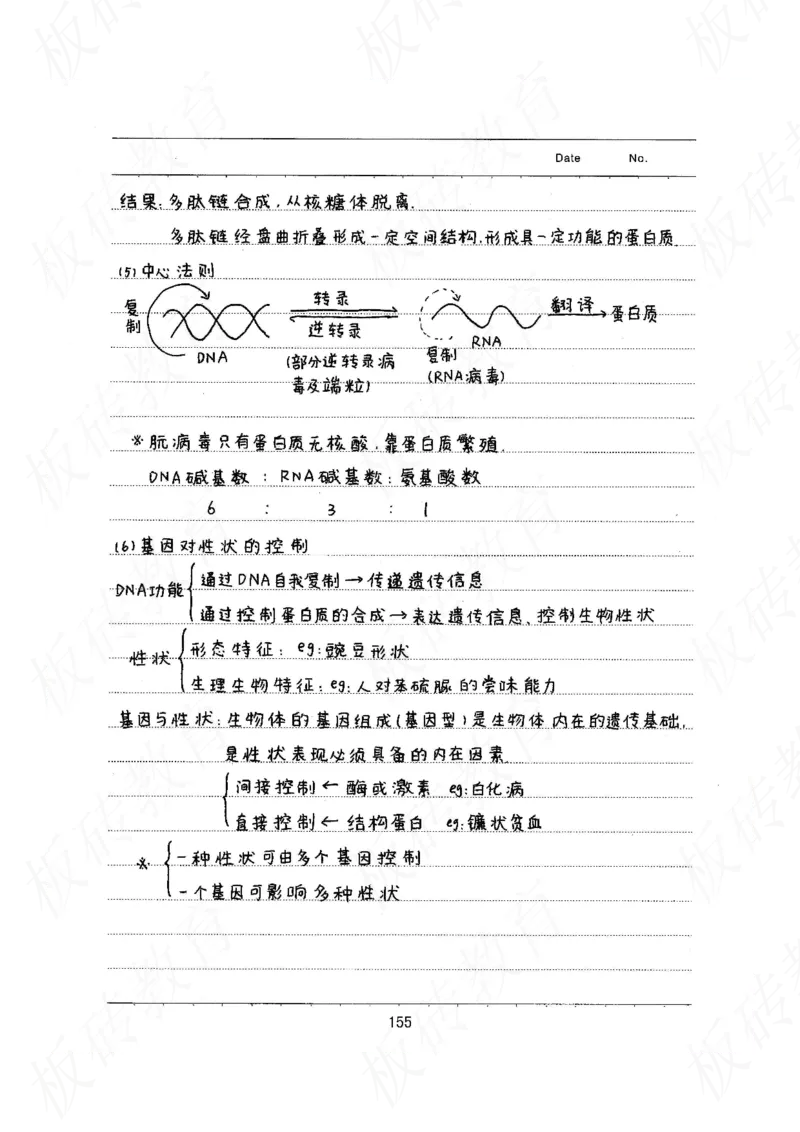 Date No.
结果:多肽链合成,从核糖体脱离.
多肽链经盘曲折叠形成一定空间结构,形成具一定功能的蛋白质.
(5)中心法则
复制 DNA 转录 逆转录 (部分逆转录病毒及端粒) RNA 复制 (RNA病毒) 翻译 蛋白质
※朊病毒只有蛋白质无核酸,靠蛋白质繁殖.
DNA碱基数 : RNA碱基数 : 氨基酸数
6 : 3 : 1
(6)基因对性状的控制
DNA功能 通过DNA自我复制→传递遗传信息
通过控制蛋白质的合成→表达遗传信息、控制生物性状
性状 形态特征: eg:豌豆形状
生理生物特征: eg:人对苯硫脲的尝味能力
基因与性状:生物体的基因组成(基因型)是生物体内在的遗传基础,
是性状表现必须具备的内在因素.
间接控制←酶或激素 eg:白化病
直接控制←结构蛋白 eg:镰状贫血
※ 一种性状可由多个基因控制
一个基因可影响多种性状
155
板砖教育